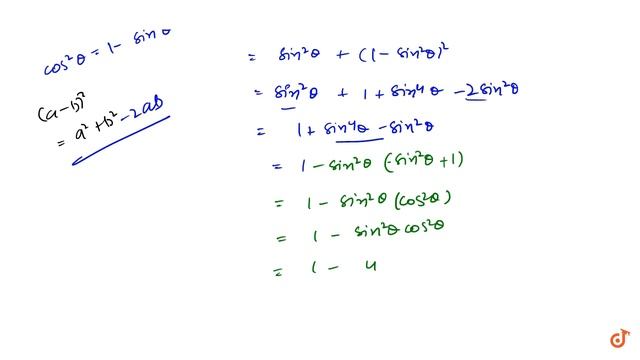 cos²θ = 1 - sin θ
(a-b)²
= a² + b² - 2ab
= sin²θ + (1 - sin²θ)²
= sin²θ + 1 + sin⁴θ - 2sin²θ
= 1 + sin⁴θ - sin²θ
= 1 - sin²θ (-sin²θ + 1)
= 1 - sin²θ (cos²θ)
= 1 - sin²θ cos²θ
= 1 - 4